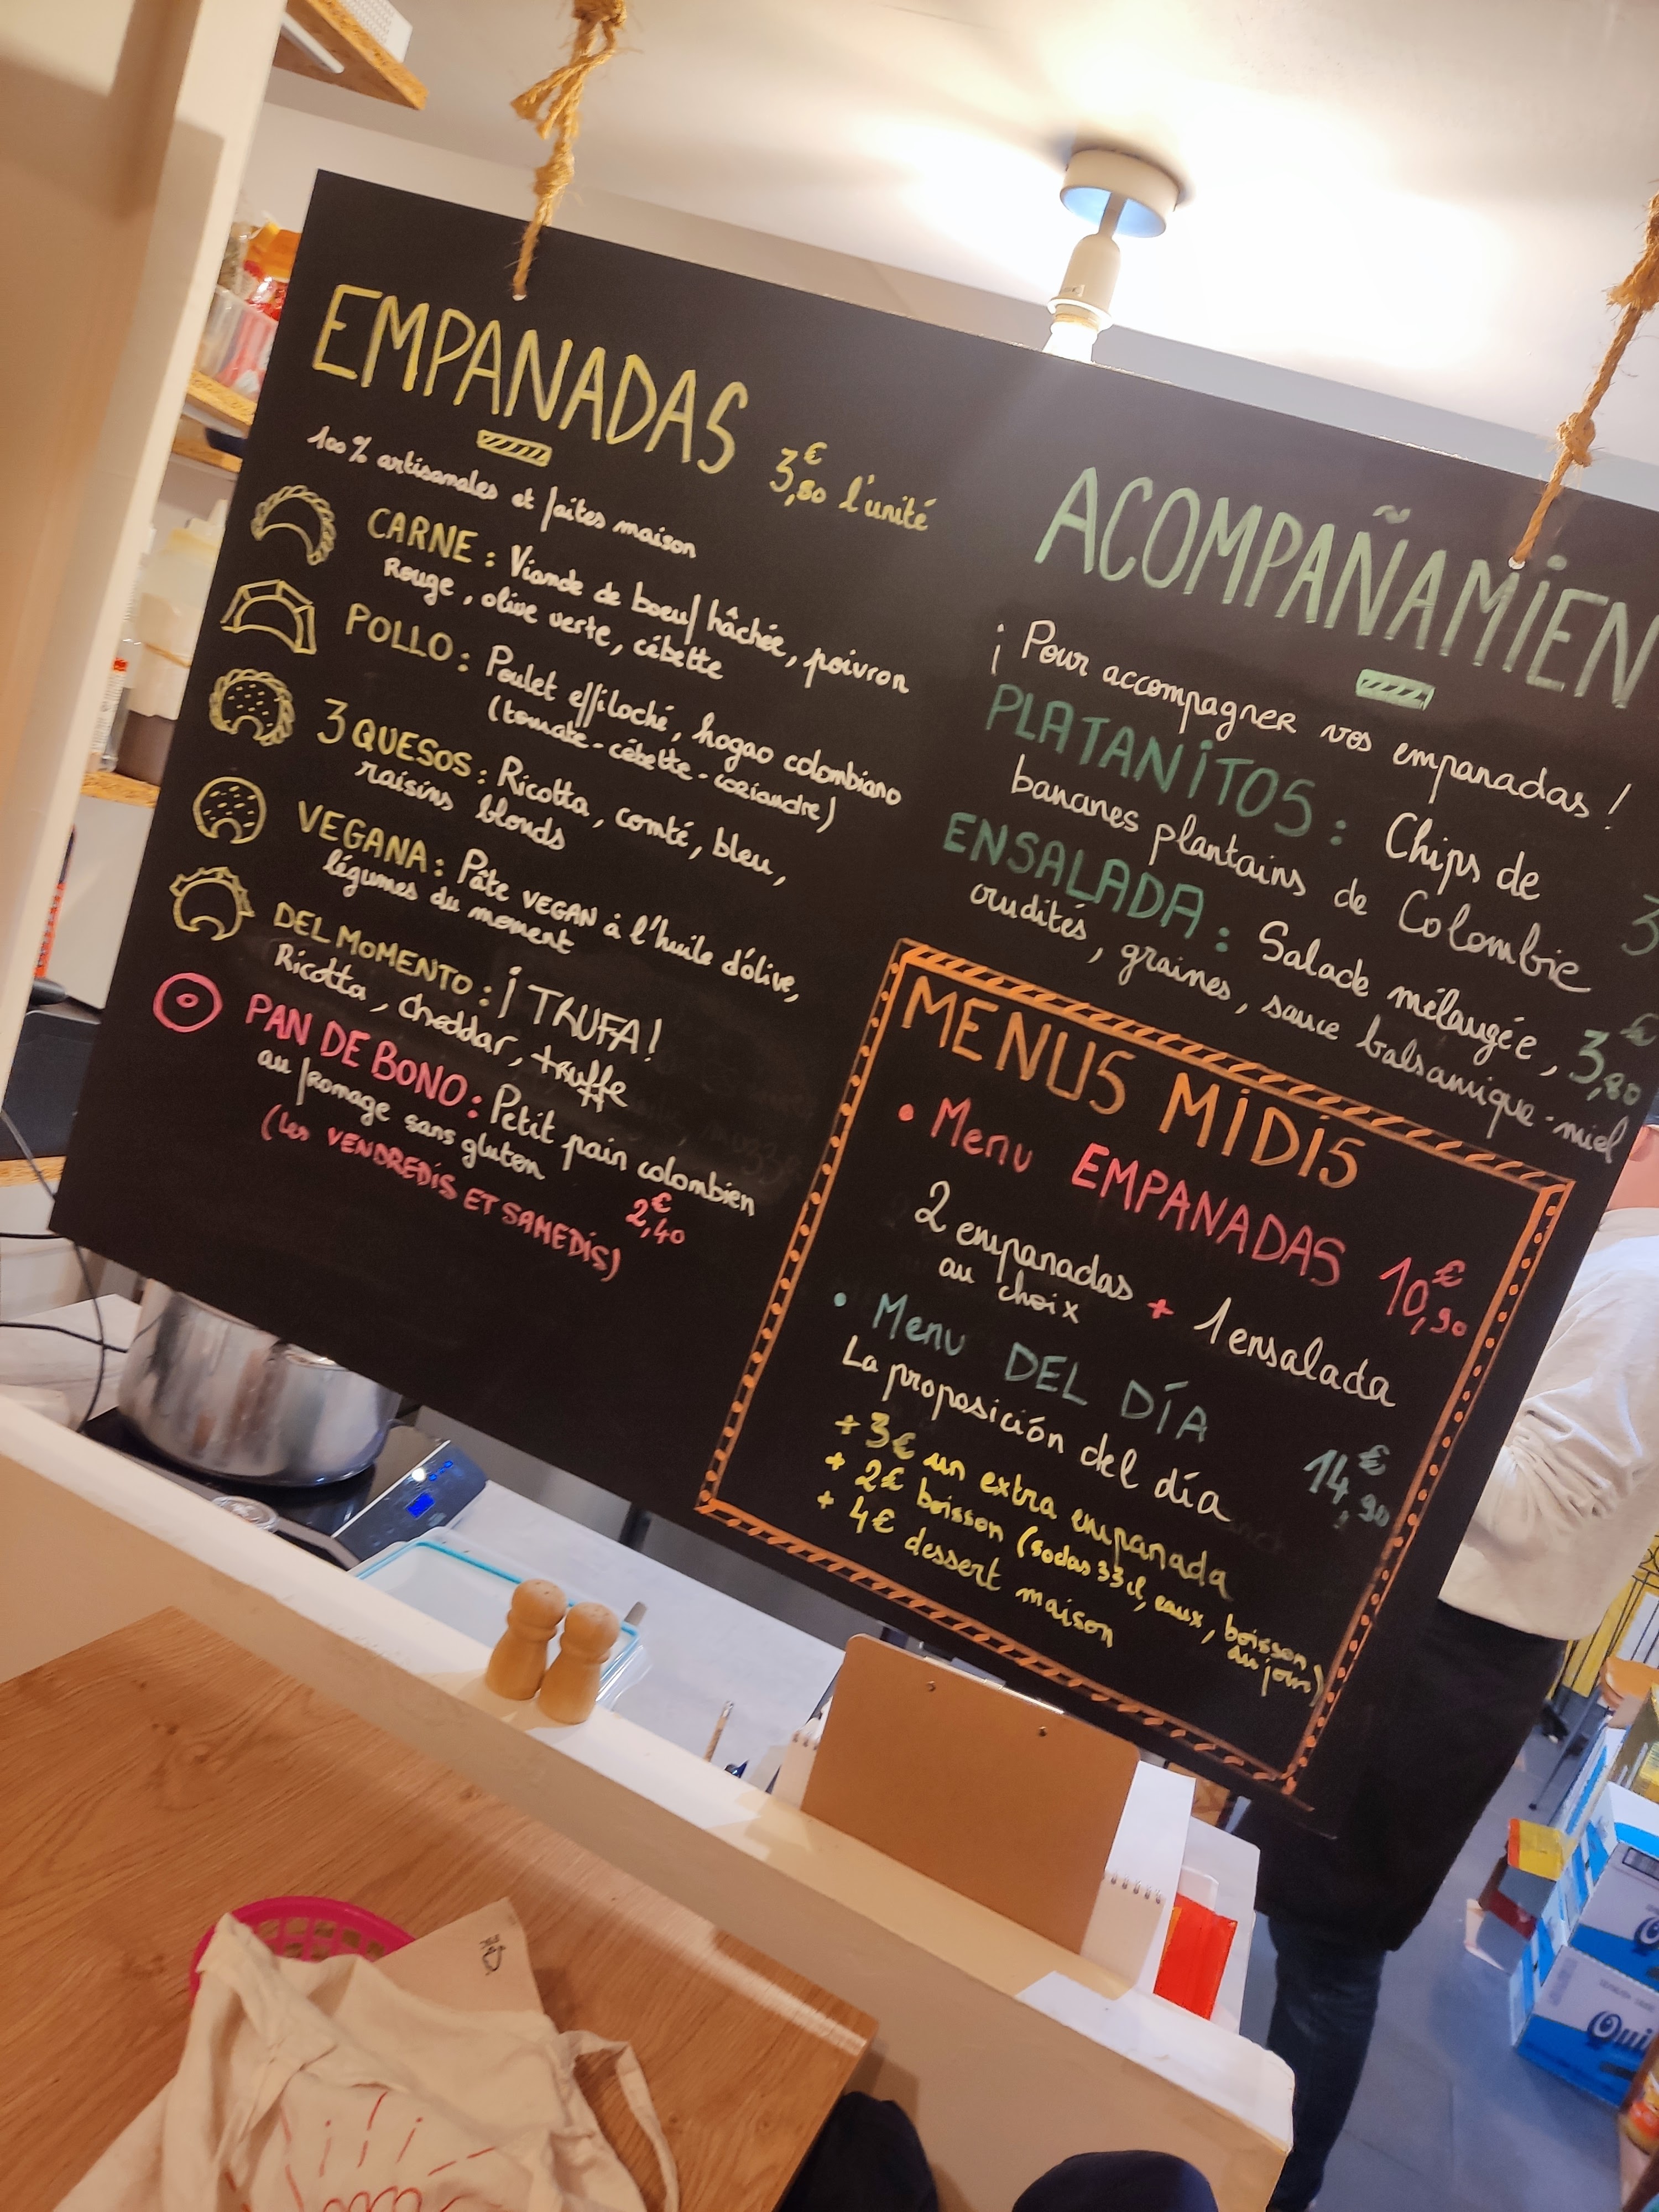 EMPANADAS
3,80€ l'unité
100% artisanales et faites maison
CARNE : Viande de boeuf hâchée, poivron
Rouge, olive verte, cébette
POLLO : Poulet effiloché, hogao colombiano
(tomate-cébette-coriandre)
3 QUESOS : Ricotta, comté, bleu,
raisins blonds
VEGANA : Pâte VEGAN à l'huile d'olive,
légumes du moment
DEL MOMENTO : ¡TRUFA!
Ricotta, cheddar, truffe
PAN DE BONO : Petit pain colombien
au fromage sans gluten
2,40€
(les VENDREDIS ET SAMEDIS)
ACOMPAÑAMIEN
¡ Pour accompagner vos empanadas !
PLATANITOS : Chips de
bananes plantains de Colombie
3
ENSALADA : Salade mélangée,
crudités, graines, sauce balsamique-miel
3,80€
MENUS MIDIS
• Menu EMPANADAS 10,90€
2 empanadas + 1 ensalada
au choix
• Menu DEL DÍA 14,90€
La proposición del día
+ 3€ un extra empanada
+ 2€ boisson (sodas 33cl, eaux, boisson
du jour)
+ 4€ dessert maison